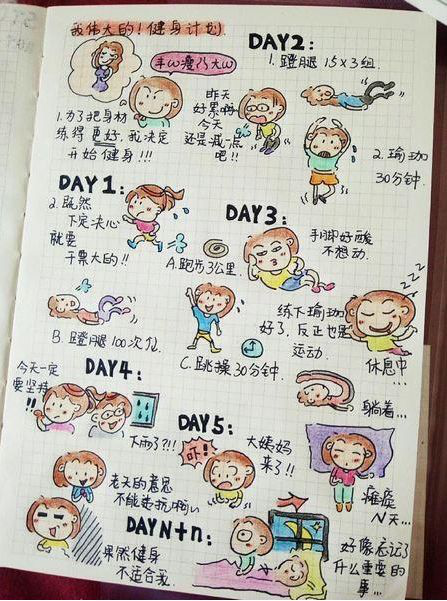 我伟大的！健身计划
丰ω瘦乃大ω
1.为了把身材
练得更好,我决定
开始健身!!!
DAY1:
2.既然
下定决心
就要
干票大的!!
A.跑步3公里.
B.蹬腿100次.
C.跳操30分钟.
DAY2:
1.蹬腿 15×3组.
昨天
好累啊
今天
还是减一点
吧!!
2.瑜珈
30分钟.
DAY3:
手脚好酸
不想动.
练下瑜珈
好了,反正也是
运动.
ZZZ
休息中...
躺着...
DAY4:
今天一定
要坚持
!!
下雨了?!!
老天的意思
不能违抗啊
果然健身
不适合我.
DAY5:
吓!
大姨妈
来了!!
瘫痪
N天...
DAYN+n:
好像忘记了
什么重要的
事...